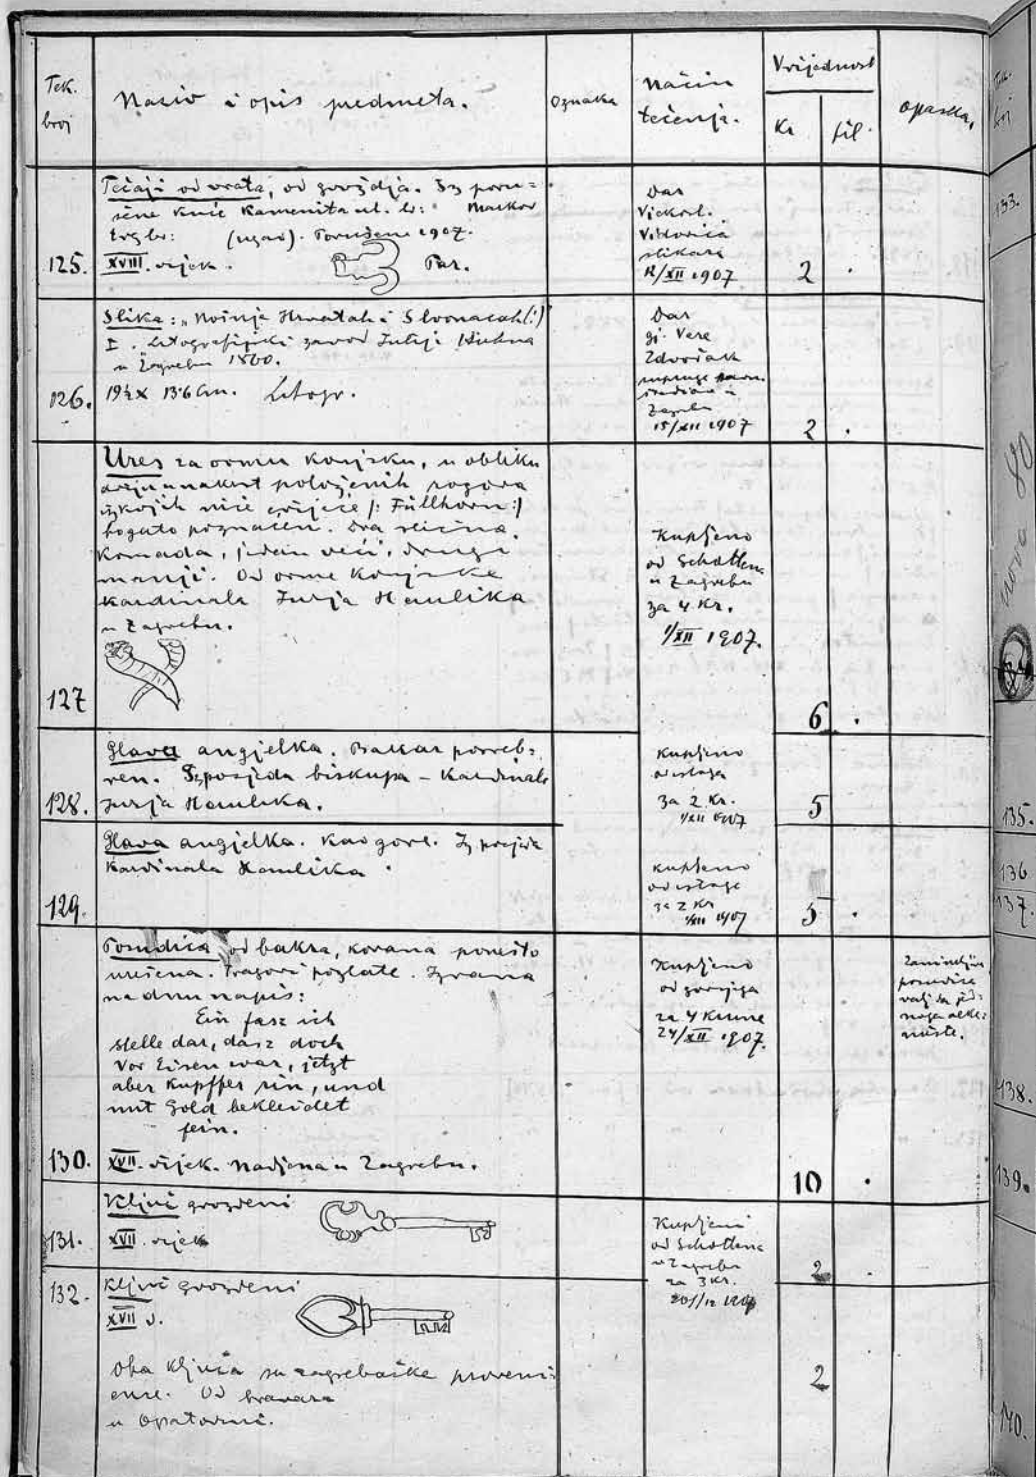 Tek.
broj
Naziv i opis predmeta.
Oznaka
Način
tečenja.
Vrijednost
Kr
fil.
opaska.
125.
Tečaji od vrata, od gvoždja. Iz poru=
šene kuće Kamenita ul. br: Markov
Trg br: (ugao). Porušena 1907.
XVIII. vijek. Par.
Dar
Vjekosl.
Viktorića
slikara
12/XII 1907
2 .
126.
Slika: „Nošnja Hrvatah i Slavonacah(:)
I. Litografijski zavod Julije Hühna
u Zagrebu 1860.
19½ x 13·6 cm. Litogr.
Dar
gj. Vere
Zdvořak
supruge
Zagrebu
15/XII 1907
2 .
127
Ures za ormu konjsku, u obliku
dvaju unakrst položenih rogova
iz kojih niče cvijeće /: Füllhorn:/
bogato pozlaćen. Dva slična
komada, jedan veći, drugi
manji. Od orme konjske
kardinala Jurja Haulika
u Zagrebu.
Kupljeno
od Schottena
u Zagrebu
za 4 Kr.
1/XII 1907.
6 .
128.
Glava angjelka. Bakar posreb=
ren. Iz posjeda biskupa - Kardinala
Jurja Haulika.
Kupljeno
od istoga
za 2 Kr.
1/XII 1907
5
129.
Glava angjelka. Kao gore. Iz posjeda
Kardinala Haulika
Kupljeno
od istoga
za 2 Kr
1/XII 1907
5 .
130.
Posudica od bakra, kovana ponešto
urešena. Tragovi pozlate. Izvana
na dnu napis:
Ein fasz ich
stelle dar, dasz doch
vor Eisen war, jetzt
aber Kupffer rin, und
mit Gold bekleidet
fein.
XVII. vijek. Nadjena u Zagrebu.
Kupljeno
od gornjega
za 4 Krune
24/XII 1907.
10 .
Zanimljiva
posudica
valjda
noga alke=
miste.
131.
Ključ gvozdeni
XVII. vijek
Kupljeni
od Schottena
u Zagrebu
za 3 Kr.
20/12 1907
2 .
132.
Ključ gvozdeni
XVII v.
Oba ključa su zagrebačke proveni=
ence. Od bravara
u Opatovini.
2
133.
nova
135.
136
137.
138.
139.
140.